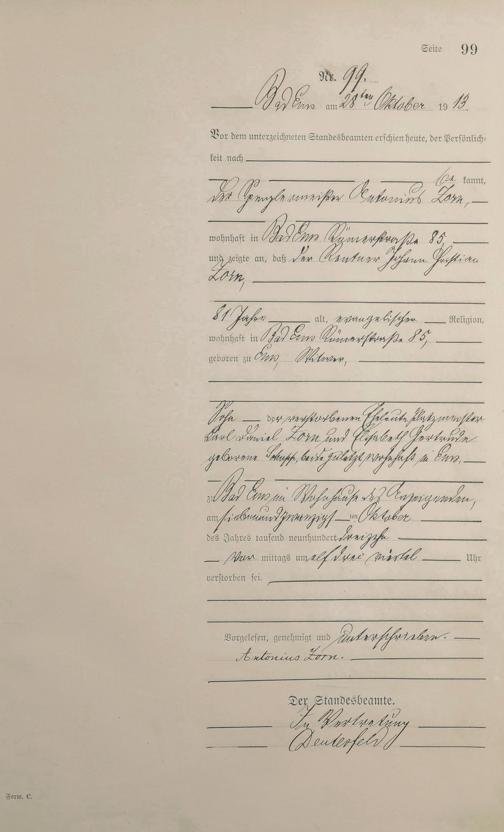 Seite 99
Nr. 99.
Bad Ems am 28ten Oktober 1913
Vor dem unterzeichneten Standesbeamten erschien heute, der Persönlich-
keit nach
be kannt,
der Spenglermeister Antonius Zorn,
wohnhaft in Bad Ems Römerstraße 85,
und zeigte an, daß der Rentner Johann Christian
Zorn,
81 Jahre alt, evangelischer Religion,
wohnhaft in Bad Ems Römerstraße 85,
geboren zu Ems, Witwer,
Sohn der verstorbenen Eheleute
Karl Daniel Zorn und Elisabeth Gertrude
geborene beide zuletzt wohnhaft in Ems.
zu Bad Ems im Wohnhause des Anzeigenden,
am siebenundzwanzigsten Oktober
des Jahres tausend neunhundert dreizehn
vor mittags um elf drei viertel Uhr
verstorben sei.
Vorgelesen, genehmigt und unterschrieben.
Antonius Zorn.
Der Standesbeamte.
In Vertretung
Form. C.